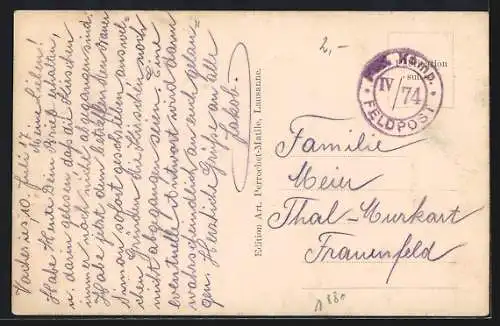 Vacheries, 10. Juli 17
Meine Lieben!
Habe Heute Dein Brief erhalten,
u. darin gelesen, daß die Kirschen
immer noch nicht abgegangen sind.
Habe jetzt dem betreffenden Bauer
Simon sofort geschrieben aus wel-
chen Gründen die Kirschen noch
nicht abgegangen seien. Eine
eventuelle Antwort wird dann
wahrscheindlich an euch gelan-
gen. Herzliche Grüße an alle
Jakob.
Edition Art. Perrochet-Matile, Lausanne.
2,-
Komp.
IV/74
FELDPOST
Familie
Meier
Thal-Murkart
Frauenfeld